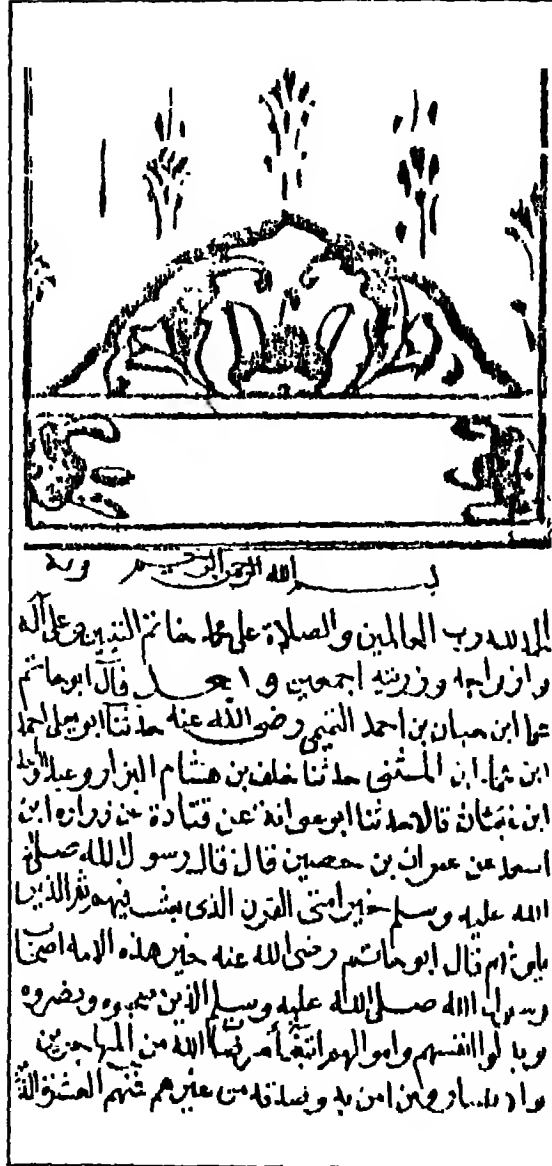 بسم الله الرحمن الرحيم
الحمد لله رب العالمين والصلاة على محمد خاتم النبيين وعلى آله
وازواجه وذريته اجمعين و بعد قال ابو حاتم
محمد ابن حبان بن احمد التميمى رضى الله عنه حدثنا ابو يعلى احمد
ابن على ابن المثنى حدثنا خلف بن هشام البزار وعبد الواحد
ابن غياث قالا حدثنا ابو عوانة عن قتادة عن زراره ابن
عن عمران بن حصين قال قال رسول الله صلى
الله عليه وسلم خير امتى القرن الذى بعثت فيهم ثم الذين
قال ابو حاتم رضى الله عنه خير هذه الامة اصحاب
رسول الله صلى الله عليه وسلم الذين صحبوه ونصروه
وبذلوا انفسهم واموالهم الله من المهاجرين
والانصار ومن امن به وصدقه من غيرهم